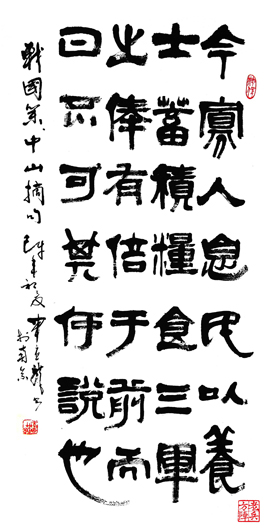 今寡人息民以養
士蓄積糧食三軍
之俸有倍于前而
曰不可其伊說也
戰國策中山摘句
年初夏